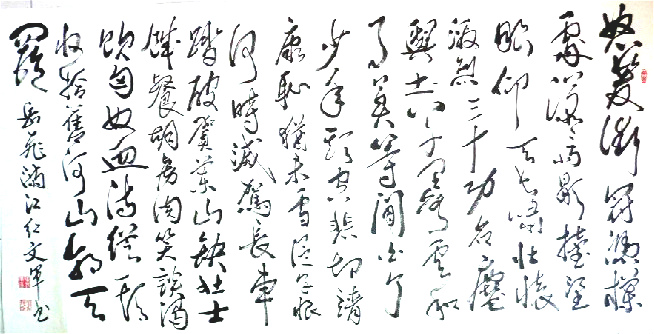 怒髮衝冠憑欄
處瀟瀟雨歇擡望
眼仰天長嘯壯懷
激烈三十功名塵
與土八千里路雲和
月莫等閒白了
少年頭空悲切靖
康恥猶未雪臣子恨
何時滅駕長車
踏破賀蘭山缺壯士
饑餐胡虜肉笑談渴
飲匈奴血待從頭
收拾舊河山朝天
闕 岳飛滿江紅文軍書